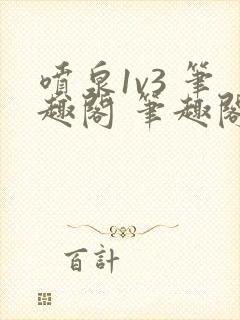 噴泉1v3 筆
趣閣 筆趣閣
百計